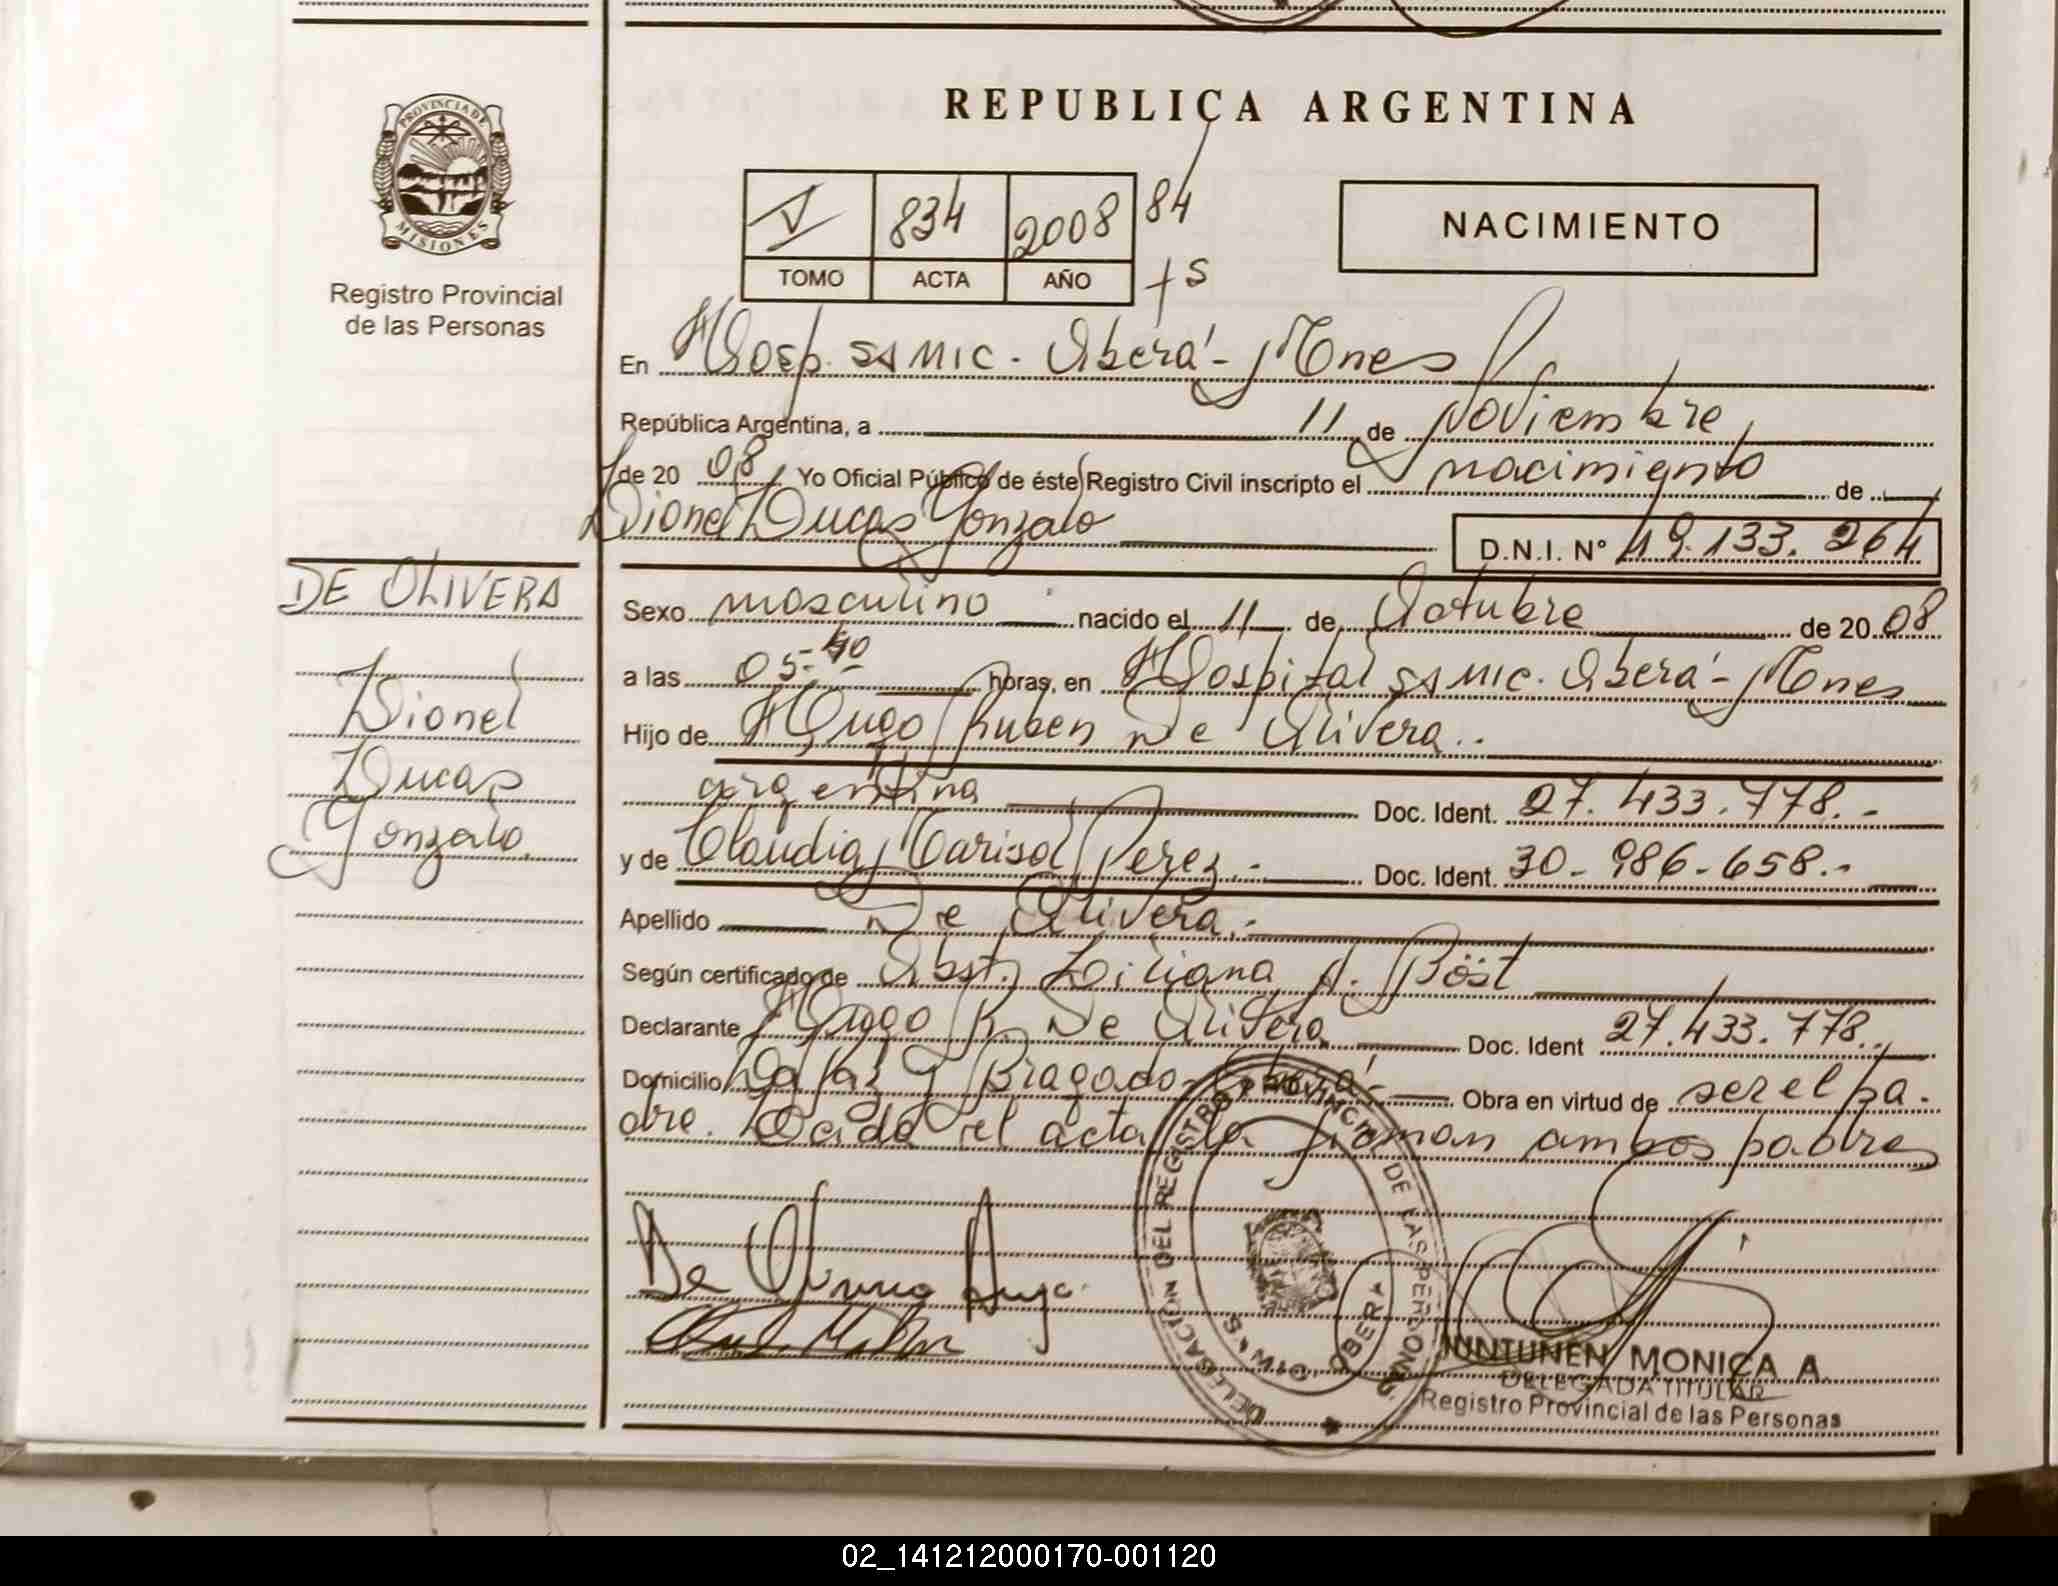 PROVINCIA DE
MISIONES
Registro Provincial
de las Personas
REPUBLICA ARGENTINA
V 834 2008 84
TOMO ACTA AÑO
NACIMIENTO
En Hosp. SAMIC. Oberá - Mnes
República Argentina, a 11 de Noviembre
de 20 08 Yo Oficial Público de éste Registro Civil inscripto el nacimiento de
Lionel Lucas Gonzalo D.N.I. Nº 49.133.264
DE OLIVERA
Lionel
Lucas
Gonzalo
Sexo masculino nacido el 11 de Octubre de 20 08
a las 05-40 horas, en Hospital SAMIC. Oberá - Mnes
Hijo de Hugo Ruben De Olivera..
argentina Doc. Ident. 27.433.778.-
y de Claudia Marisol Perez.- Doc. Ident. 30-986-658.-
Apellido De Olivera.-
Según certificado de Obst. Liliana A. Böst
Declarante Hugo R. De Olivera Doc. Ident 27.433.778..
Domicilio La Paz y Bragado - Oberá - Obra en virtud de ser el pa-
dre. Leida el acta la firman ambos padres
De Olivera Hugo
DELEGACIÓN DEL REGISTRO PROVINCIAL DE LAS PERSONAS
OBERA
JUNTUNEN MONICA A.
DELEGADA TITULAR
Registro Provincial de las Personas
02_141212000170-001120